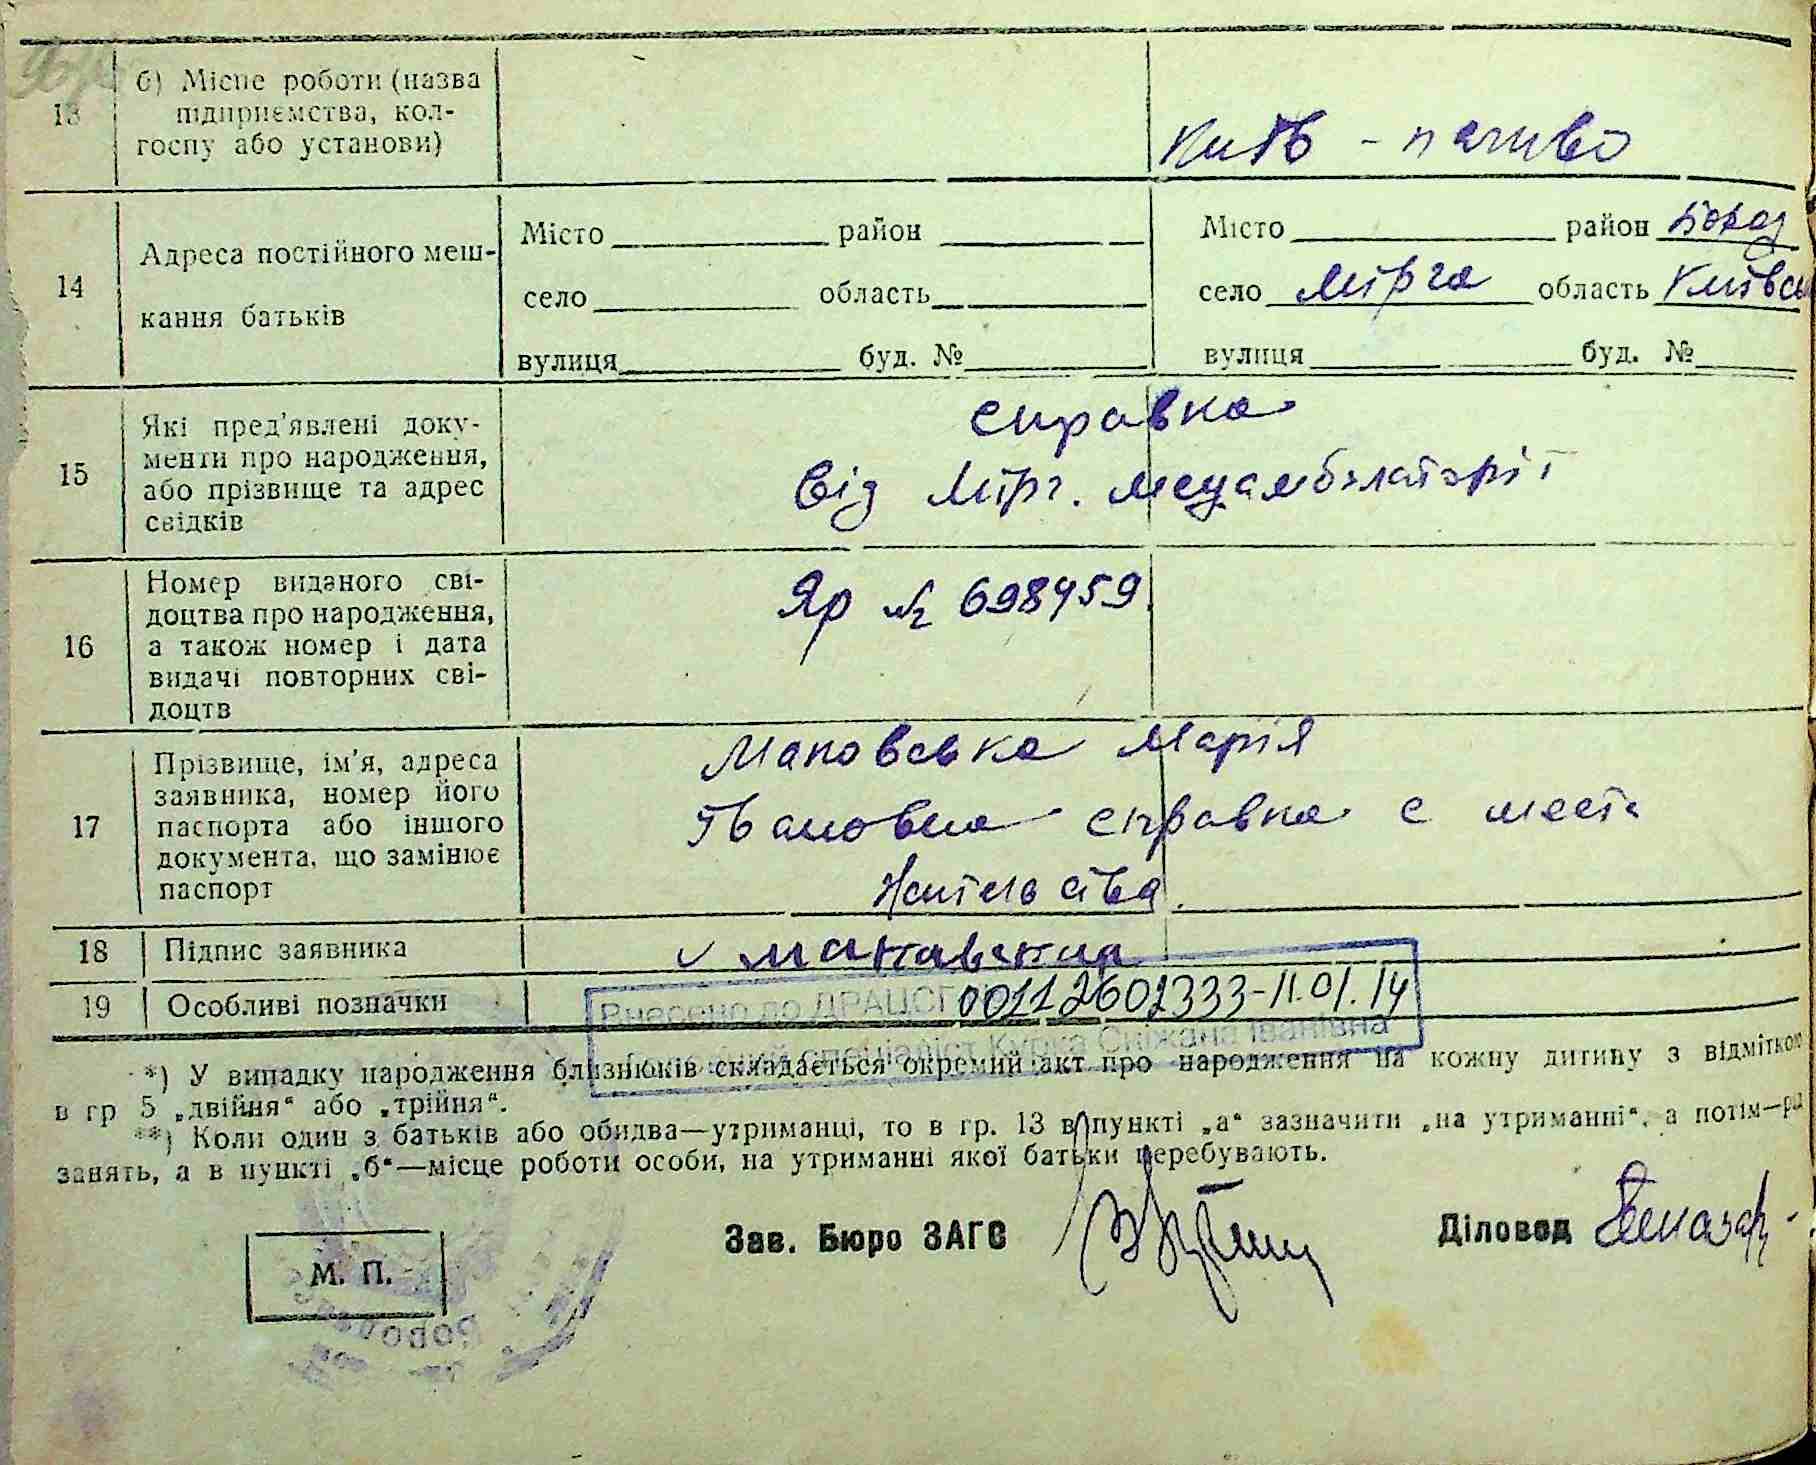 13 б) Місце роботи (назва
підприємства, кол-
госпу або установи)
Київ - паливо
14 Адреса постійного меш-
кання батьків
Місто район Місто район Бород
село область село Мирча область Київсь
вулиця буд. № вулиця буд. №
15 Які пред'явлені доку-
менти про народження,
або прізвище та адрес
свідків
справка
від Мирч. медамбулаторії
16 Номер виданого сві-
доцтва про народження,
а також номер і дата
видачі повторних сві-
доцтв
Яр № 698459
17 Прізвище, ім'я, адреса
заявника, номер його
паспорта або іншого
документа, що замінює
паспорт
Маковська Марія
Івановна справка с места
жительства.
18 Підпис заявника
19 Особливі позначки
Внесено до ДРАЦСГ 00112602333-11.01.14
спеціаліст Сніжана Іванівна
*) У випадку народження близнюків складається окремий акт про народження на кожну дитину з відміткою
в гр 5 „двійня“ або „трійня“.
**) Коли один з батьків або обидва—утриманці, то в гр. 13 в пункті „а“ зазначити „на утриманні“, а потім—рід
занять, а в пункті „б“—місце роботи особи, на утриманні якої батьки перебувають.
Зав. Бюро ЗАГС Діловод
М. П.